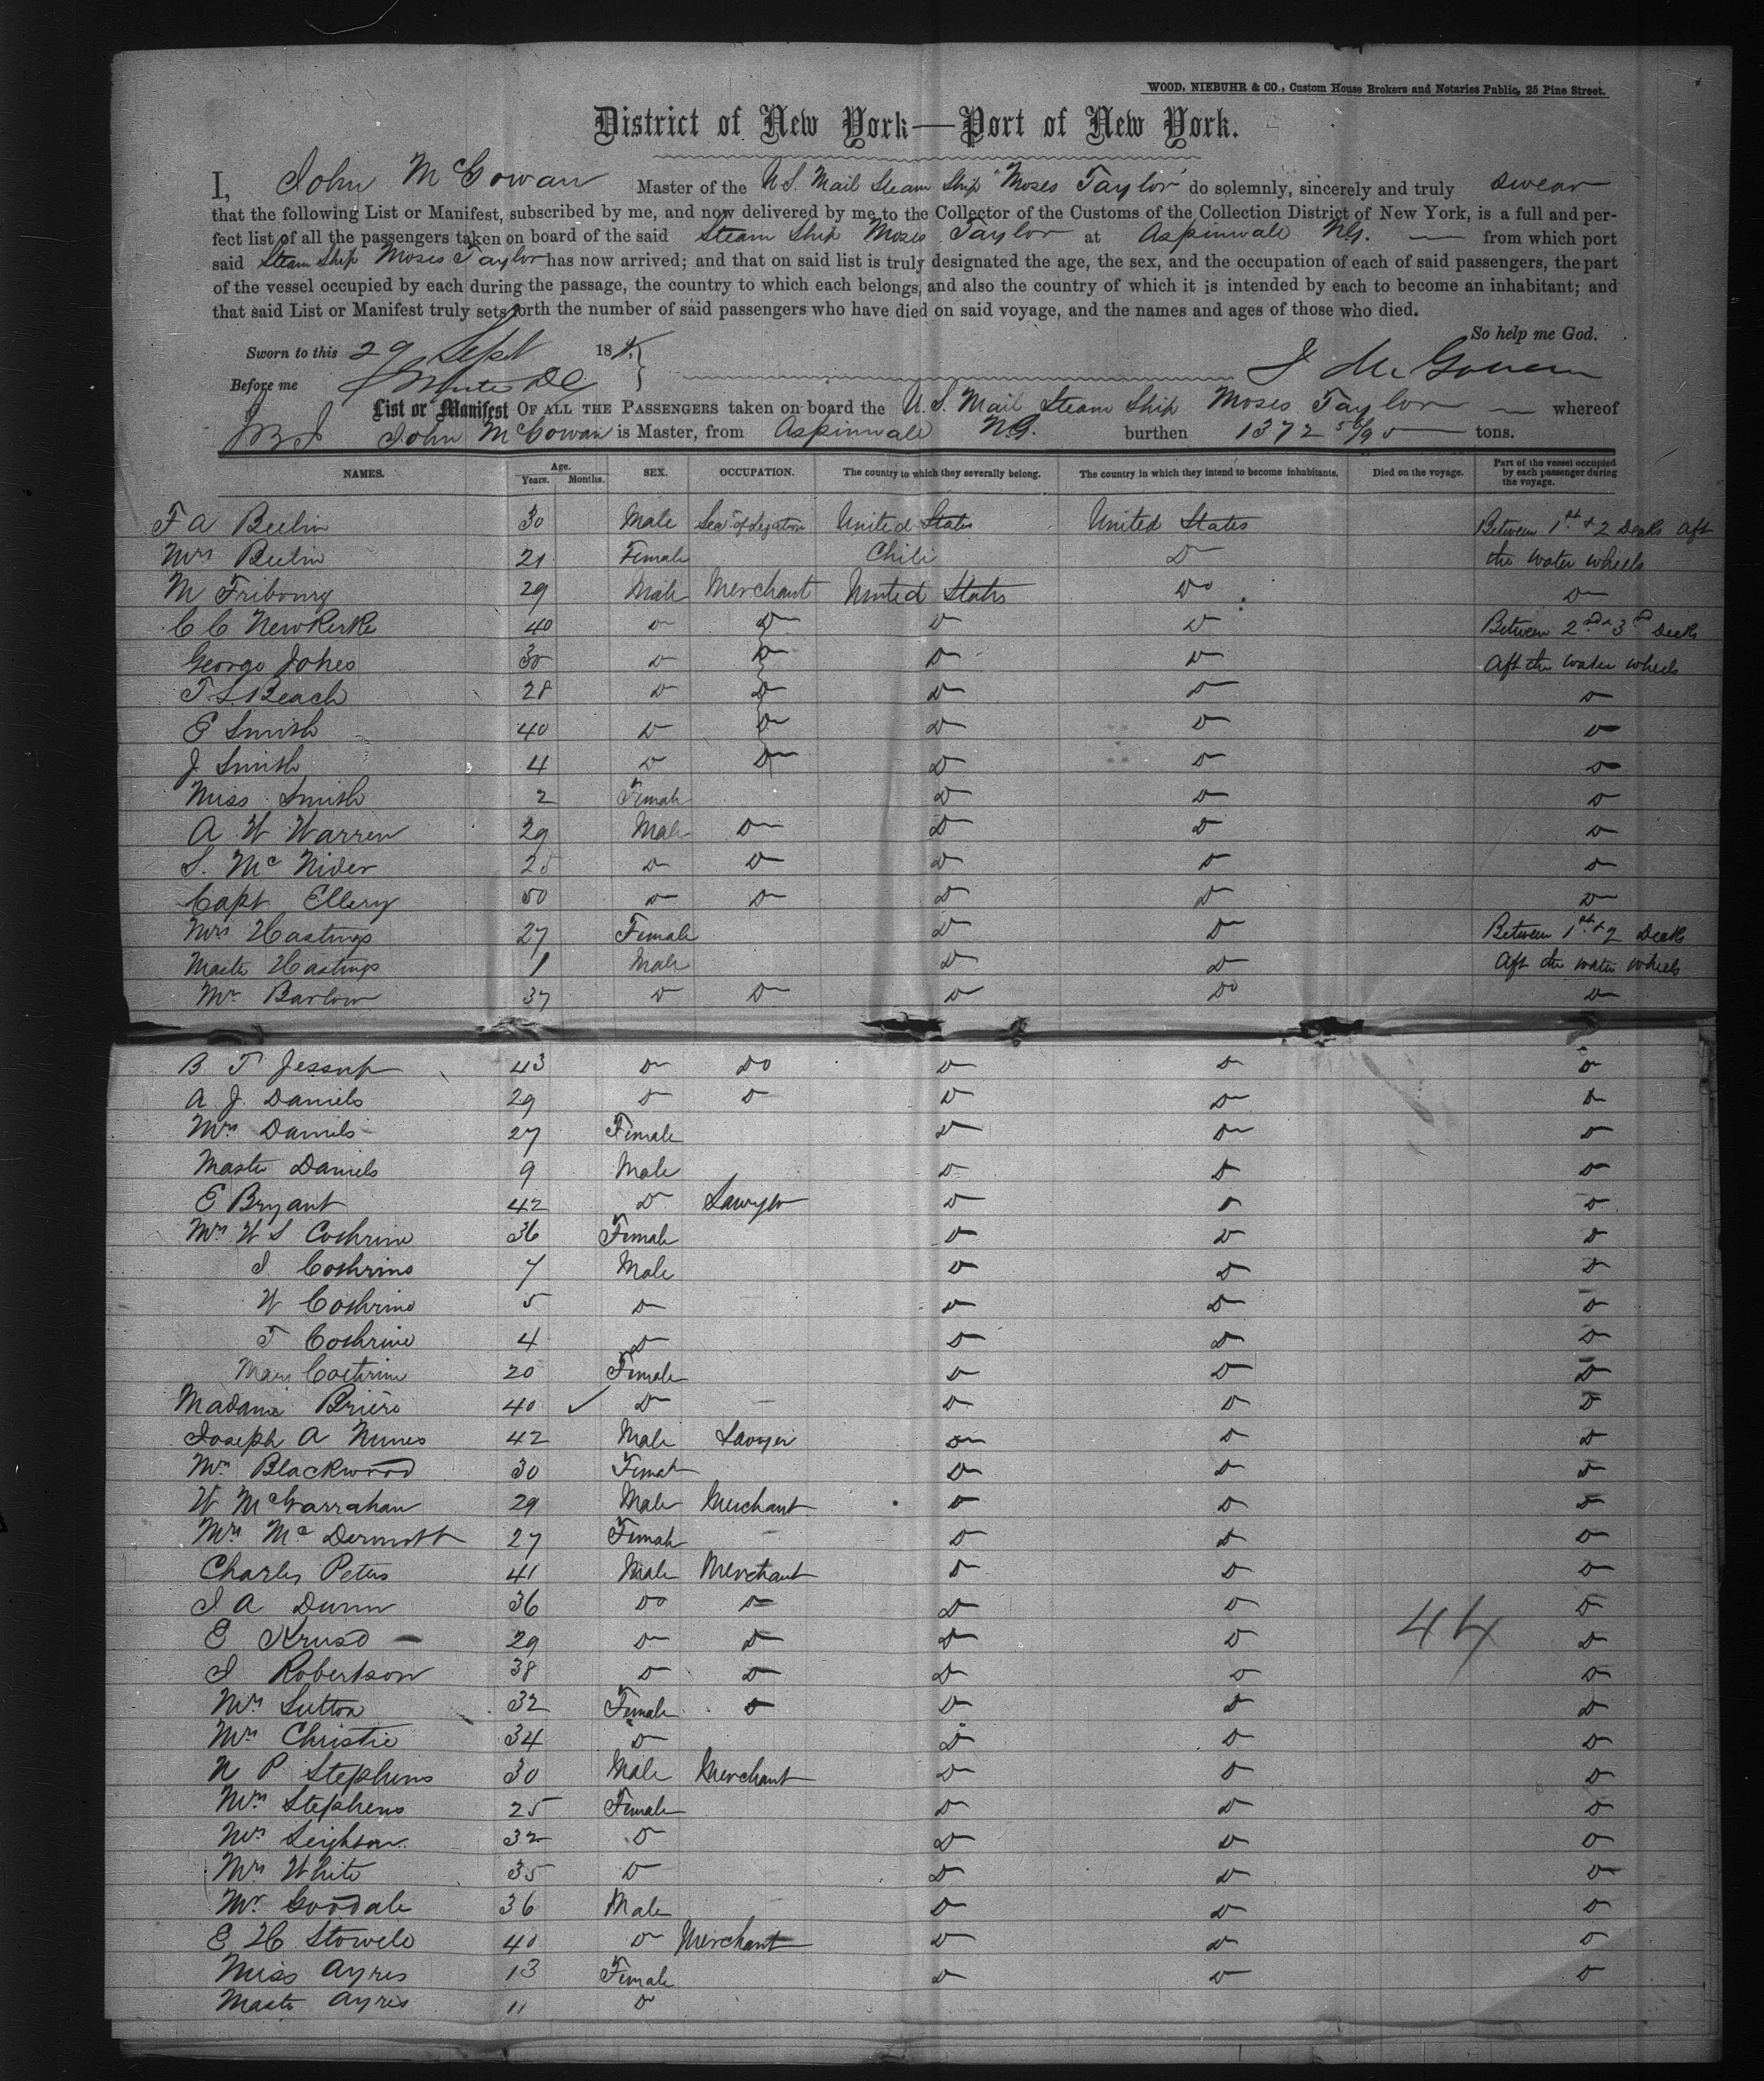 WOOD, NIEBUHR & CO., Custom House Brokers and Notaries Public, 25 Pine Street.
District of New York—Port of New York.
I, John McGowan Master of the U.S. Mail Steam Ship "Moses Taylor" do solemnly, sincerely and truly swear
that the following List or Manifest, subscribed by me, and now delivered by me to the Collector of the Customs of the Collection District of New York, is a full and per-
fect list of all the passengers taken on board of the said Steam Ship Moses Taylor at Aspinwall NG. from which port
said Steam Ship Moses Taylor has now arrived; and that on said list is truly designated the age, the sex, and the occupation of each of said passengers, the part
of the vessel occupied by each during the passage, the country to which each belongs, and also the country of which it is intended by each to become an inhabitant; and
that said List or Manifest truly sets forth the number of said passengers who have died on said voyage, and the names and ages of those who died.
So help me God.
Sworn to this 29 Sept 18
Before me J McGowan
List or Manifest OF ALL THE PASSENGERS taken on board the U.S. Mail Steam Ship Moses Taylor whereof
John McGowan is Master, from Aspinwall NG. burthen 1372 56/95 tons.
NAMES. Age. Years. Months. SEX. OCCUPATION. The country to which they severally belong. The country in which they intend to become inhabitants. Died on the voyage. Part of the vessel occupied by each passenger during the voyage.
F A Beelin 30 Male Secy of Legation United States United States Between 1st & 2 Decks aft
Mrs Beelin 21 Female Chili Do the water wheels
M Fribourg 29 Male Merchant United States Do Do
C C Newkerke 40 Do Do Do Do Between 2nd & 3rd Decks
George Johes 30 Do Do Do Do Aft the water wheels
T. S. Beach 28 Do Do Do Do Do
E Smith 40 Do Do Do Do Do
J Smith 4 Do Do Do Do Do
Miss Smith 2 Female Do Do Do
A W Warren 29 Male Do Do Do Do
S. McNider 28 Do Do Do Do Do
Capt Ellery 50 Do Do Do Do Do
Mrs Hastings 27 Female Do Do Between 1st & 2 Decks
Maste Hastings 1 Male Do Do Aft the water wheels
Mr Barlow 37 Do Do Do Do Do
B T Jessup 43 Do Do Do Do Do
A J. Daniels 29 Do Do Do Do Do
Mrs Daniels 27 Female Do Do Do
Maste Daniels 9 Male Do Do Do
E Bryant 42 Do Lawyer Do Do Do
Mrs W S Cothrine 36 Female Do Do Do
J. Cothrine 7 Male Do Do Do
W Cothrine 5 Do Do Do Do
T Cothrine 4 Do Do Do Do
Mary Cothrine 20 Female Do Do Do
Madame Briere 40 ✓ Do Do Do Do
Joseph A Nunes 42 Male Lawyer Do Do Do
Mrs Blackwood 30 Female Do Do Do
W McGarrahan 29 Male Merchant Do Do Do
Mrs McDermott 27 Female Do Do Do
Charles Peters 41 Male Merchant Do Do Do
J A Dunn 36 Do Do Do Do 44 Do
E Kruse 29 Do Do Do Do Do
J Robertson 38 Do Do Do Do Do
Mrs Sutton 32 Female Do Do Do Do
Mrs Christie 34 Do Do Do Do
N P Stephens 30 Male Merchant Do Do Do
Mrs Stephens 25 Female Do Do Do
Mrs Leighton 32 Do Do Do Do
Mrs White 35 Do Do Do Do
Mr Goodale 36 Male Do Do Do
E H Stowell 40 Do Merchant Do Do Do
Miss Ayres 13 Female Do Do Do
Maste Ayres 11 Do